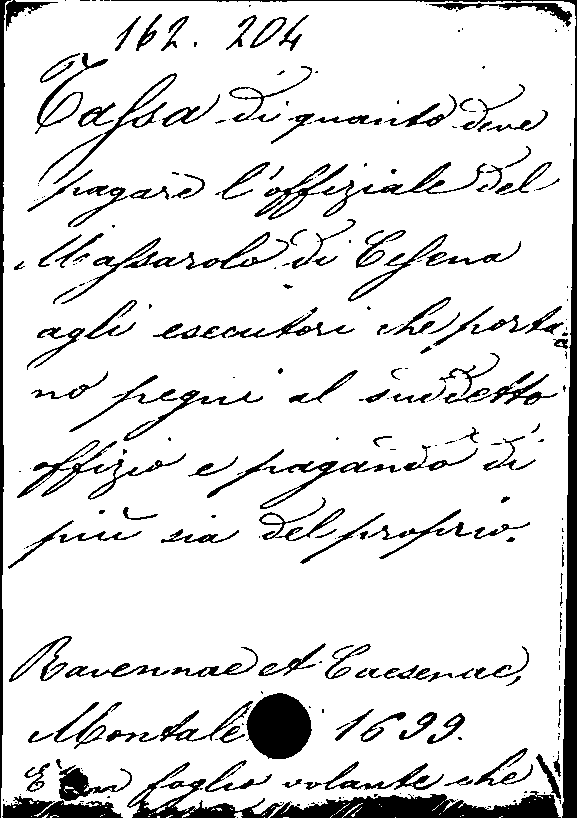 162. 204
Tassa di quanto deve
pagare l'offiziale del
Massarolo di Cesena
agli esecutori che porta-
no pegni al suddetto
offizio e pagando di
più sia del proprio.
Ravennae et Caesenae,
Montale 1699.
È un foglio volante che